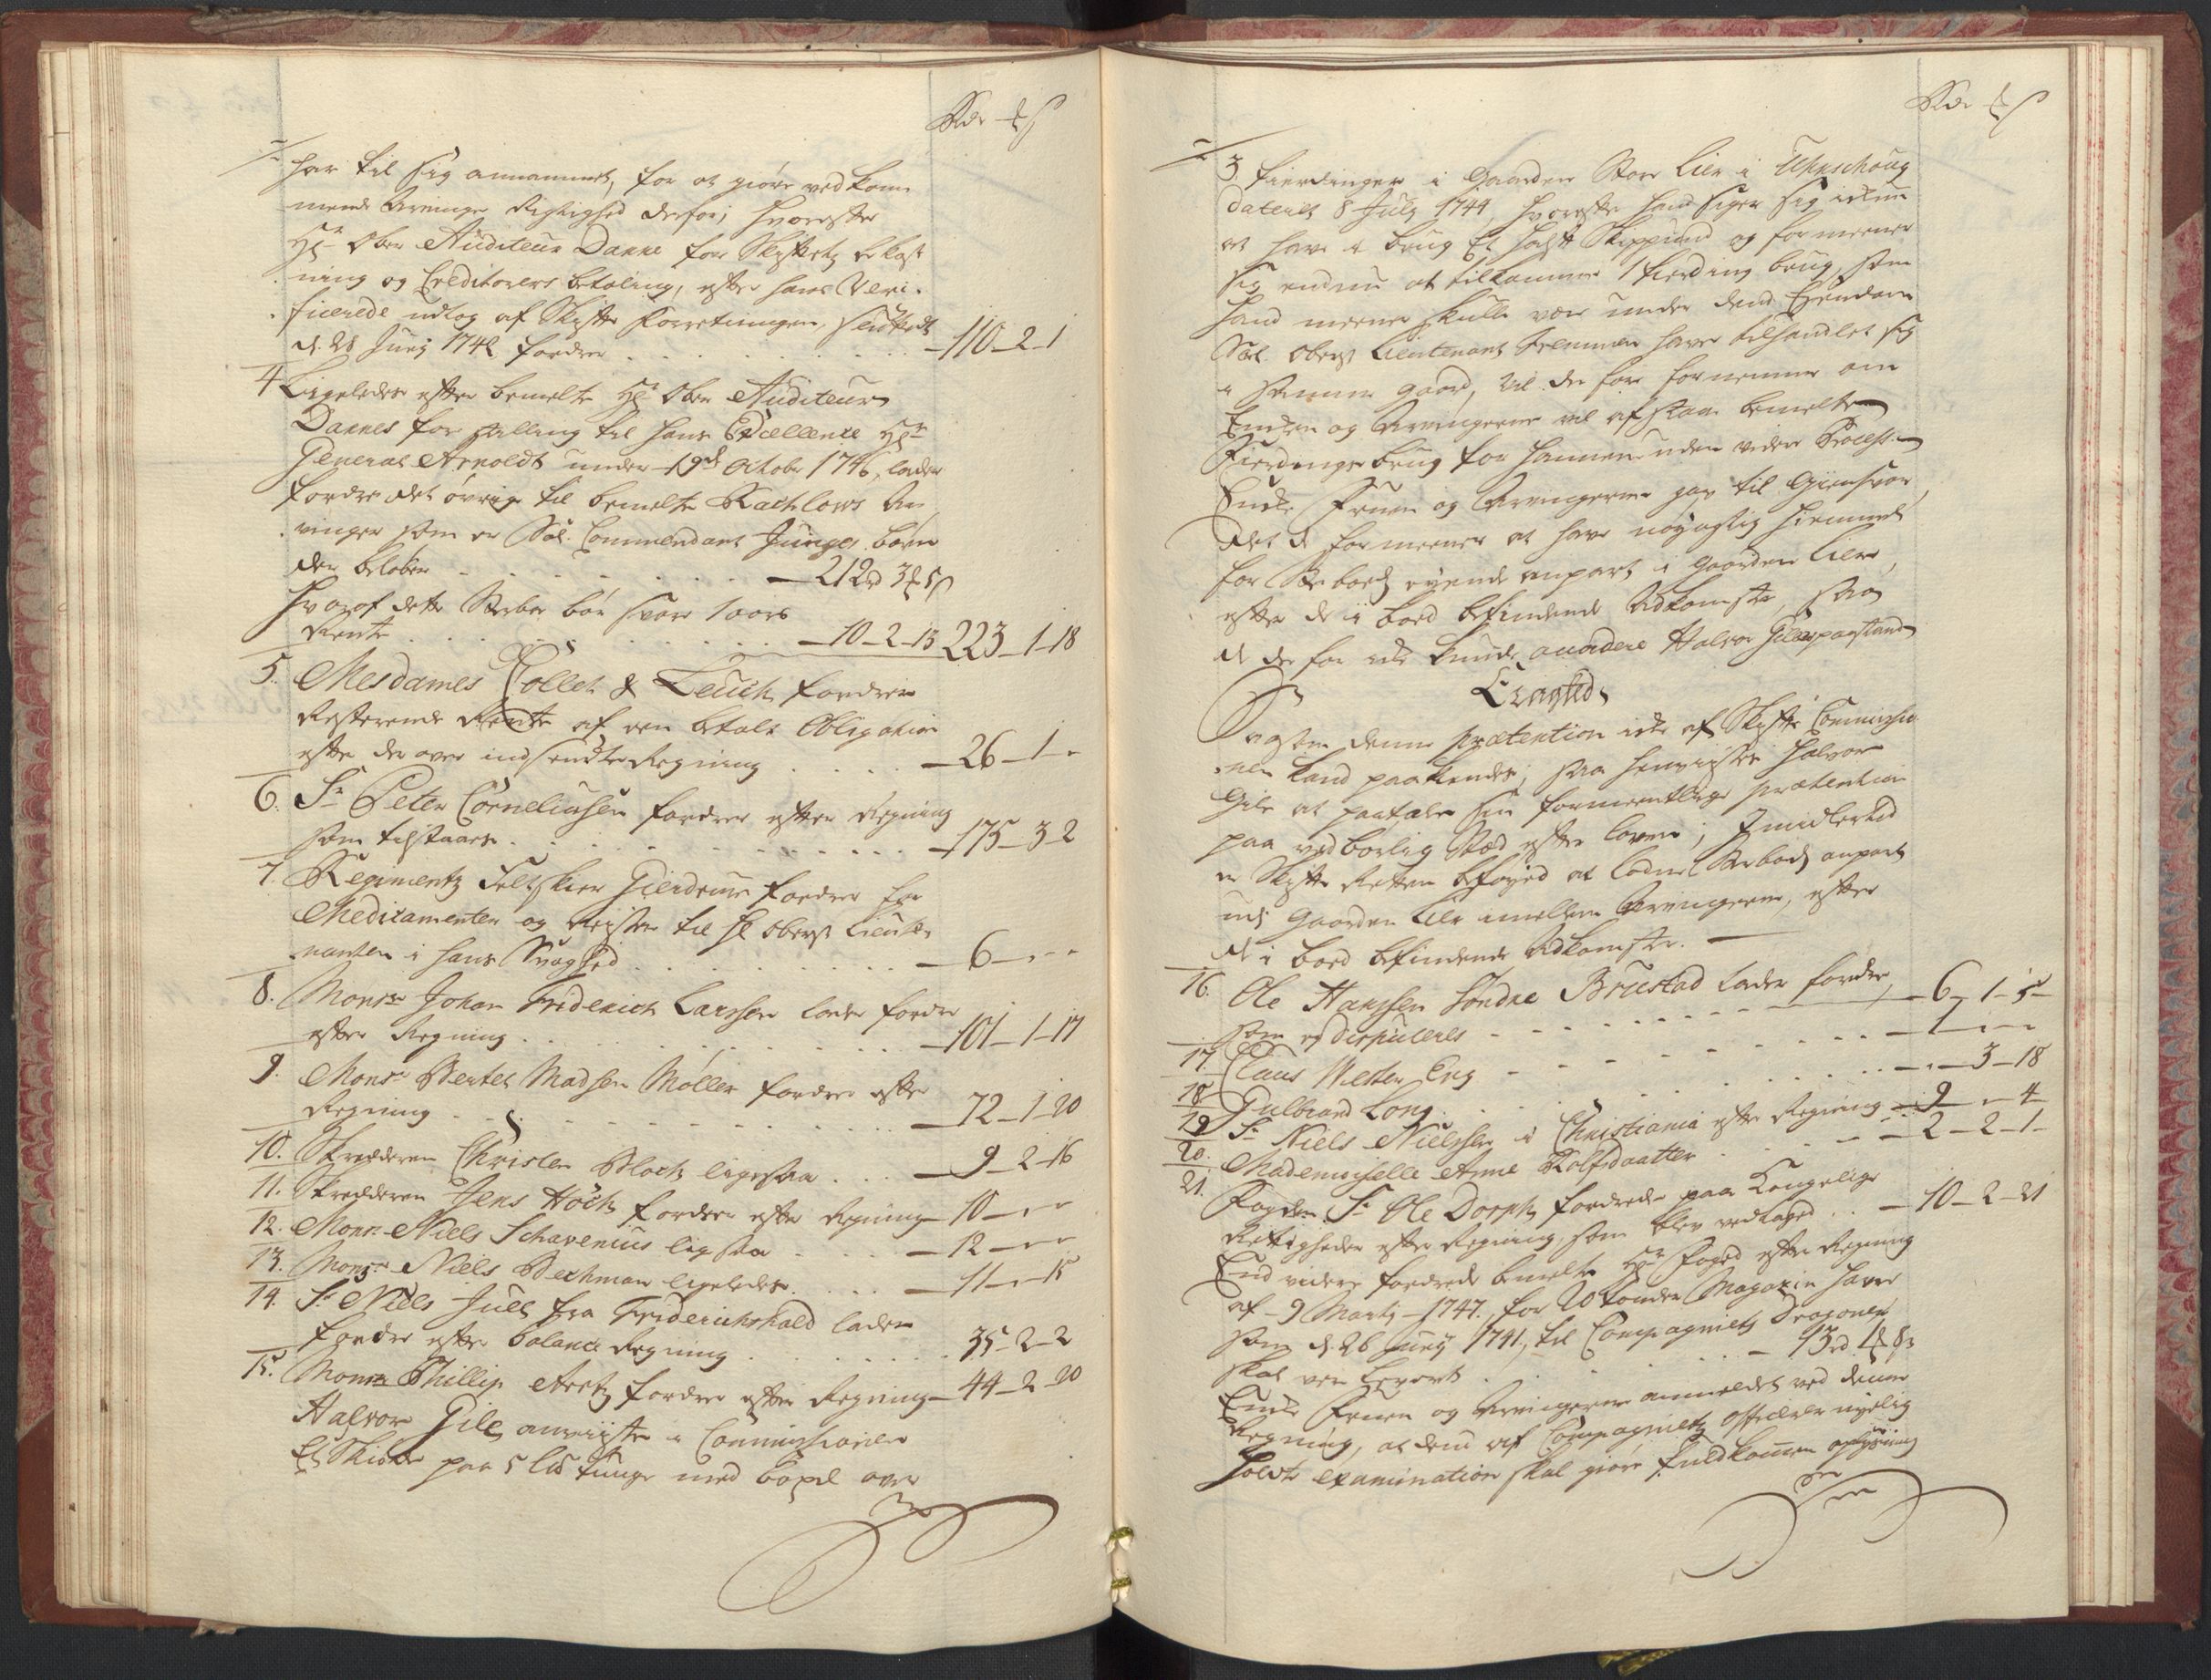 Rdr ß
har til sig annammet, for at giöre vedkom
mende Arvinger Rigtighed derfor; hvorefter
Hr Ober Auditeur Danne for Skiftets bekost
ning og Creditorers betaling, efter hans Veri-
ficerede udlog af Skifte Forretningen, sluttet
d. 28 Juny 1742 fordrer . . . 110-2-1
4 Ligeledes efter bemelte Hr Ober Auditeur
Dannes forstilling til hans Excellence Hr
General Arnoldt under 19de Octobr 1746, lader
fordre det övrige til bemelte Rachlows Ar
vinger som er Sal. Commendant Junges börn
der belöber . . . 212rd 3 5ß
hvoraf dette Sterboe bör svare 1 aars
Rente . . . 10-2-13 223-1-18
5. Mesdames Collet & Leuch fordrer
Resterende Rente af een betalt Obligation
efter der over indsendte Regning . . . 26-1-"
6. Sr Peter Corneliusen fordrer efter Regning
som tilstaaes . . . 175-3-2
7. Regimentz Feltskier Gierdrum fordrer for
Medicamenter og Reyser til Hr Oberst Lieute
nanten i hans Svaghed . . . 6-"-"
8. Monsr Johan Friderich Larssen lader fordre
efter Regning . . . 101-1-17
9. Monsr Bertel Madsen Möller fordrer efter
Regning . . . 72-1-20
10. Skrædderen Christen Bloch ligesaa . . . 9-2-16
11. Skrædderen Jens Höch fordrer efter Regning 10-"-"
12. Monsr Niels Schavenius ligesaa . . . 12-"-"
13. Monsr Niels Bechman ligeledes . . . 11-"-15
14. Sr Niels Juel fra Friderichshald lader
fordre efter balance Regning . . . 35-2-2
15. Monsr Phillip Aretz fordrer efter Regning 44-2-20
Halvor Gile anviiste i Commissionen
Et Skiöde paa 5 lis tunge med böxel over
Rdr ß
3 fierdinger i Gaarden Store Lien i Uhnschoug
dateret 8 July 1744, hvorefter hand siger sig ickun
at have i brug Et halft Skippund og formeener
sig endnu at tilkomme 1 fierding brug, som
hand meener skulle være under dend Eyendom
Sal. Oberst Lieutenant Fremmen haver tilhandlet sig
i samme gaard, vil der fore fornemme om
Enken og Arvingerne vil afstaae bemelte
Fierdings brug for hannem uden videre Process.
Encke Fruen og Arvingerne gav til Giensvar,
det de formeener at have nöyagtig hiemmel
for Sterboets eyende anpart i Gaarden Lien,
efter de ii boed befindende Adkomster, saa
at de for ickke kunde accordere Halvor Giles paastand
Eragted
Saasom denne prætention icke af Skifte Commissio-
nen kand paakiendes; saa henviises Halvor
Gile at paatale sin formeentlige prætention
paa vedbörlig Stæd efter loven; Imidlertid
er Skifte Retten beföyed at lodne Sterboets anpart
udi Gaarden Lien imellem Arvingerne, efter
de i boed befindende Adkomster.
16. Ole Hanssen Söndre Brustad lader fordre,
som ey disputeres . . . 6-1-5
17. Claus Nilsen Eng . . . 1-"-"
18. Gulbrand Long . . . "-3-18
19 Sr Niels Nielssen i Christiania efter Regning 9-"-4
20. Mademoiselle Anne Rolfsdaatter . . . 2-2-1
21. Fogden Sr Ole Dorph fordrede paa Kongelige
Rettigheder efter Regning, som blev vedtaged . . 10-2-21
End videre fordrede bemelte Hr Foged efter Regning
af 9 Martj 1747. for 20 tönder Magazin havre
som d. 26 Juny 1741, til Compagniets Dragoner
skal vere levert . . . 13rd 1 8ß
Encke Fruen og Arvingerne anmeldet ved denne
Regning, at dend af Compagniets Officerer nyelig
holdte examination skal giöre fuldkommen oplysning